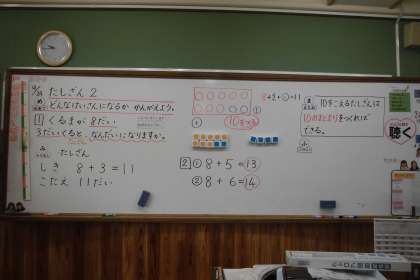 たしざん 2
め どんなけいさんになるか かんがえよう。
1 くるまが 8だい
3だいくると、なんだいになりますか。
たしざん
しき 8+3=11
こたえ 11だい
10をつくる
8+2+①=11
①
2 ① 8+5=13
② 8+6=14
ま 10をこえるたしざんは
10のまとまりをつくれば
できる。
ふ
聴く